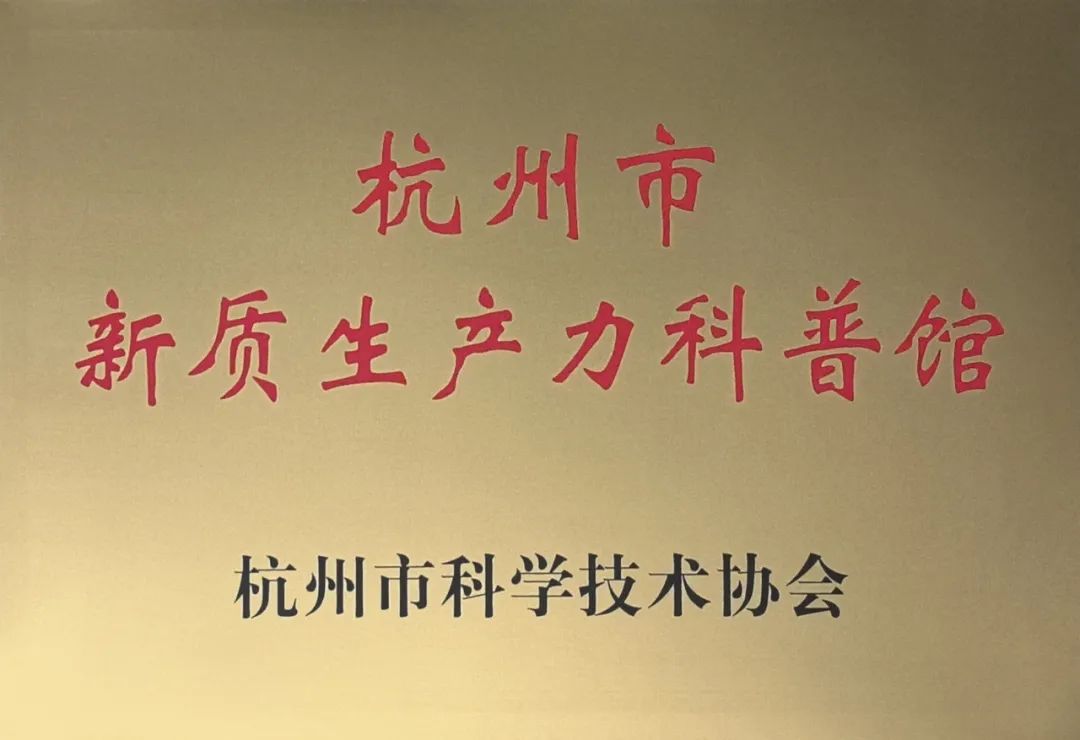 杭州市
新质生产力科普馆
杭州市科学技术协会